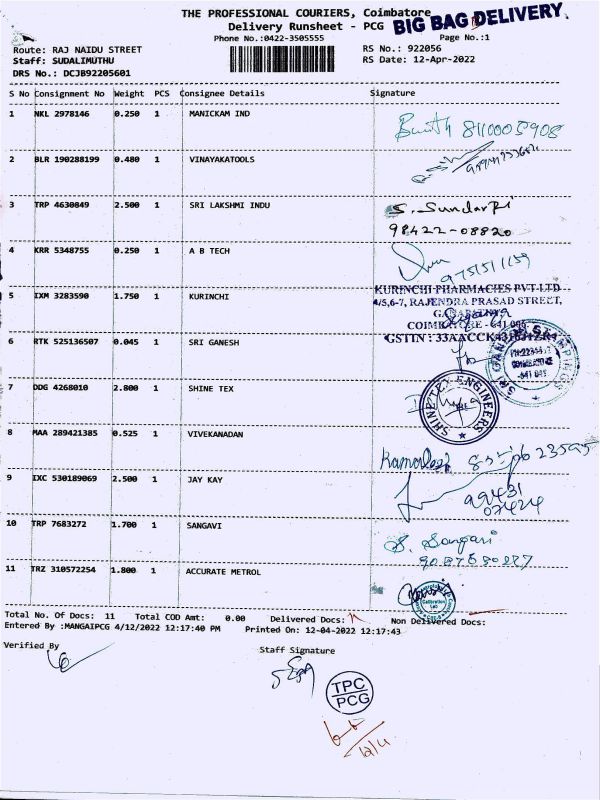 THE PROFESSIONAL COURIERS, Coimbatore
Delivery Runsheet - PCG BIG BAG DELIVERY
Phone No.:0422-3505555 Page No.:1
Route: RAJ NAIDU STREET RS No.: 922056
Staff: SUDALIMUTHU RS Date: 12-Apr-2022
DRS No.: DCJB92205601
S No Consignment No Weight PCS Consignee Details Signature
1 NKL 2978146 0.250 1 MANICKAM IND
8110005908
2 BLR 190288199 0.480 1 VINAYAKATOOLS
3 TRP 4630849 2.500 1 SRI LAKSHMI INDU S. Sundar
98422-08820
4 KRR 5348755 0.250 1 A B TECH
KURINCHI PHARMACIES PVT LTD
5 IXM 3283590 1.750 1 KURINCHI
4/5,6-7, RAJENDRA PRASAD STREET,
COIMBATORE - 641 006
6 RTK 525136507 0.045 1 SRI GANESH
GSTIN : 33AACCK
7 DDG 4268010 2.800 1 SHINE TEX
SHINETEX ENGINEERS
8 MAA 289421385 0.525 1 VIVEKANADAN
Kamalesh
9 IXC 530189069 2.500 1 JAY KAY
99431
07424
10 TRP 7683272 1.700 1 SANGAVI
S. Sangavi
11 TRZ 310572254 1.800 1 ACCURATE METROL
Total No. Of Docs: 11 Total COD Amt: 0.00 Delivered Docs: Non Delivered Docs:
Entered By :MANGAIPCG 4/12/2022 12:17:40 PM Printed On: 12-04-2022 12:17:43
Verified By
Staff Signature
TPC
PCG
12/4